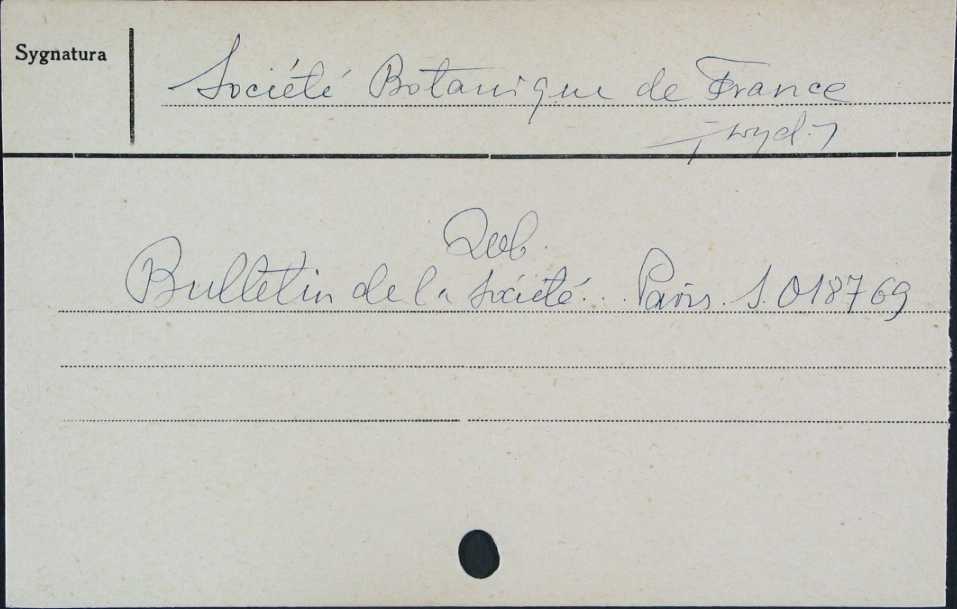 Sygnatura
Société Botanique de France
wyd.
Zob.
Bulletin de la Société... Paris. S. 018769